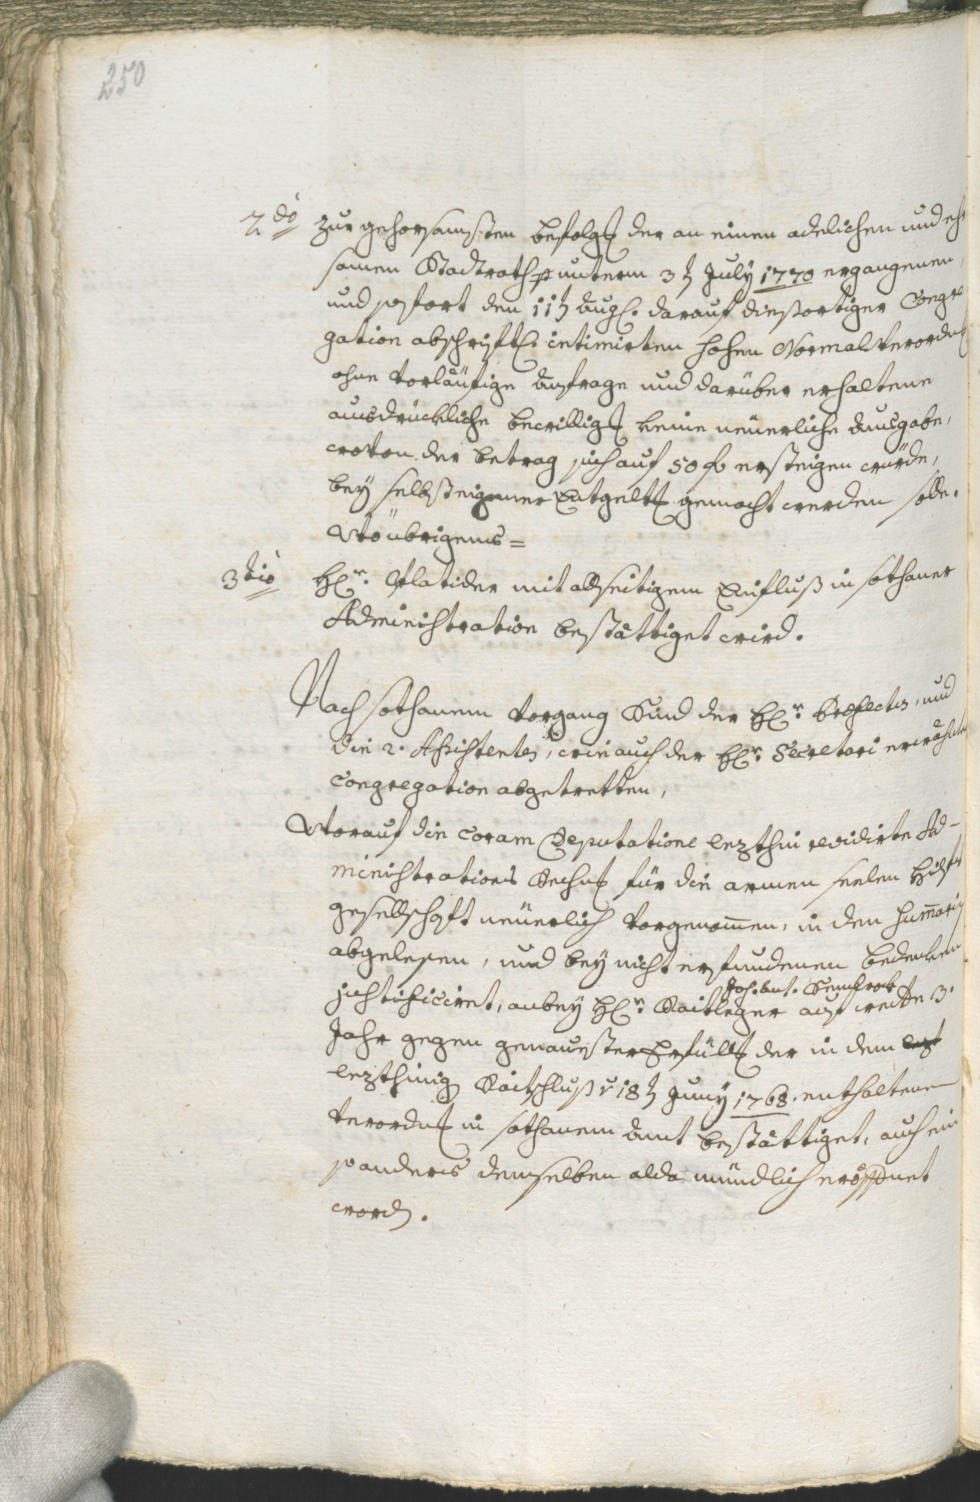 250
2do zur gehorsamsten befolg der an einen adelichen und ehr
samen Stadtrath unterm 3t July 1770 ergangenen,
und sofort den 11t Aug. darauf diesortiger Congre
gation abschriftl. intimirten hohen Normal Verordn
ohne vorläufige Anfrage und darüber erhaltene
ausdrückliche bewillig keine neüerliche Ausgabe,
wovon der betrag sich auf 50 f ersteigen würde,
bey selbsteigener Entgelt gemacht werden solle.
Wo übrigens =
3tio H. mit allseitigem Einfluß in sothaner
Administration bestättiget wird.
Nach sothanem Vorgang Sind der H. Präfectus, und
die 2. Assistentes, wie auch der H. Secretari erwähnter
Congregation abgetretten,
Worauf die Coram Deputatione lezthin revidirte Ad-
ministrations Rechnung für die armen Seelen Hilfs
gesellschaft neüerlich vorgenommen, in den Summari
abgelesen, und bey nicht erfundenen bedenken
Joh. Ant.
justificiret, anbey H. Raitleger auf weitte 3.
Jahr gegen genauester Erfüll der in dem lezt
lezthinig Raitschluß v. 18t Juny 1768. enthaltene
Verordn in sothanem Amt bestättiget, auch ein
so anderes demselben alda mündlich eröffnet
word.